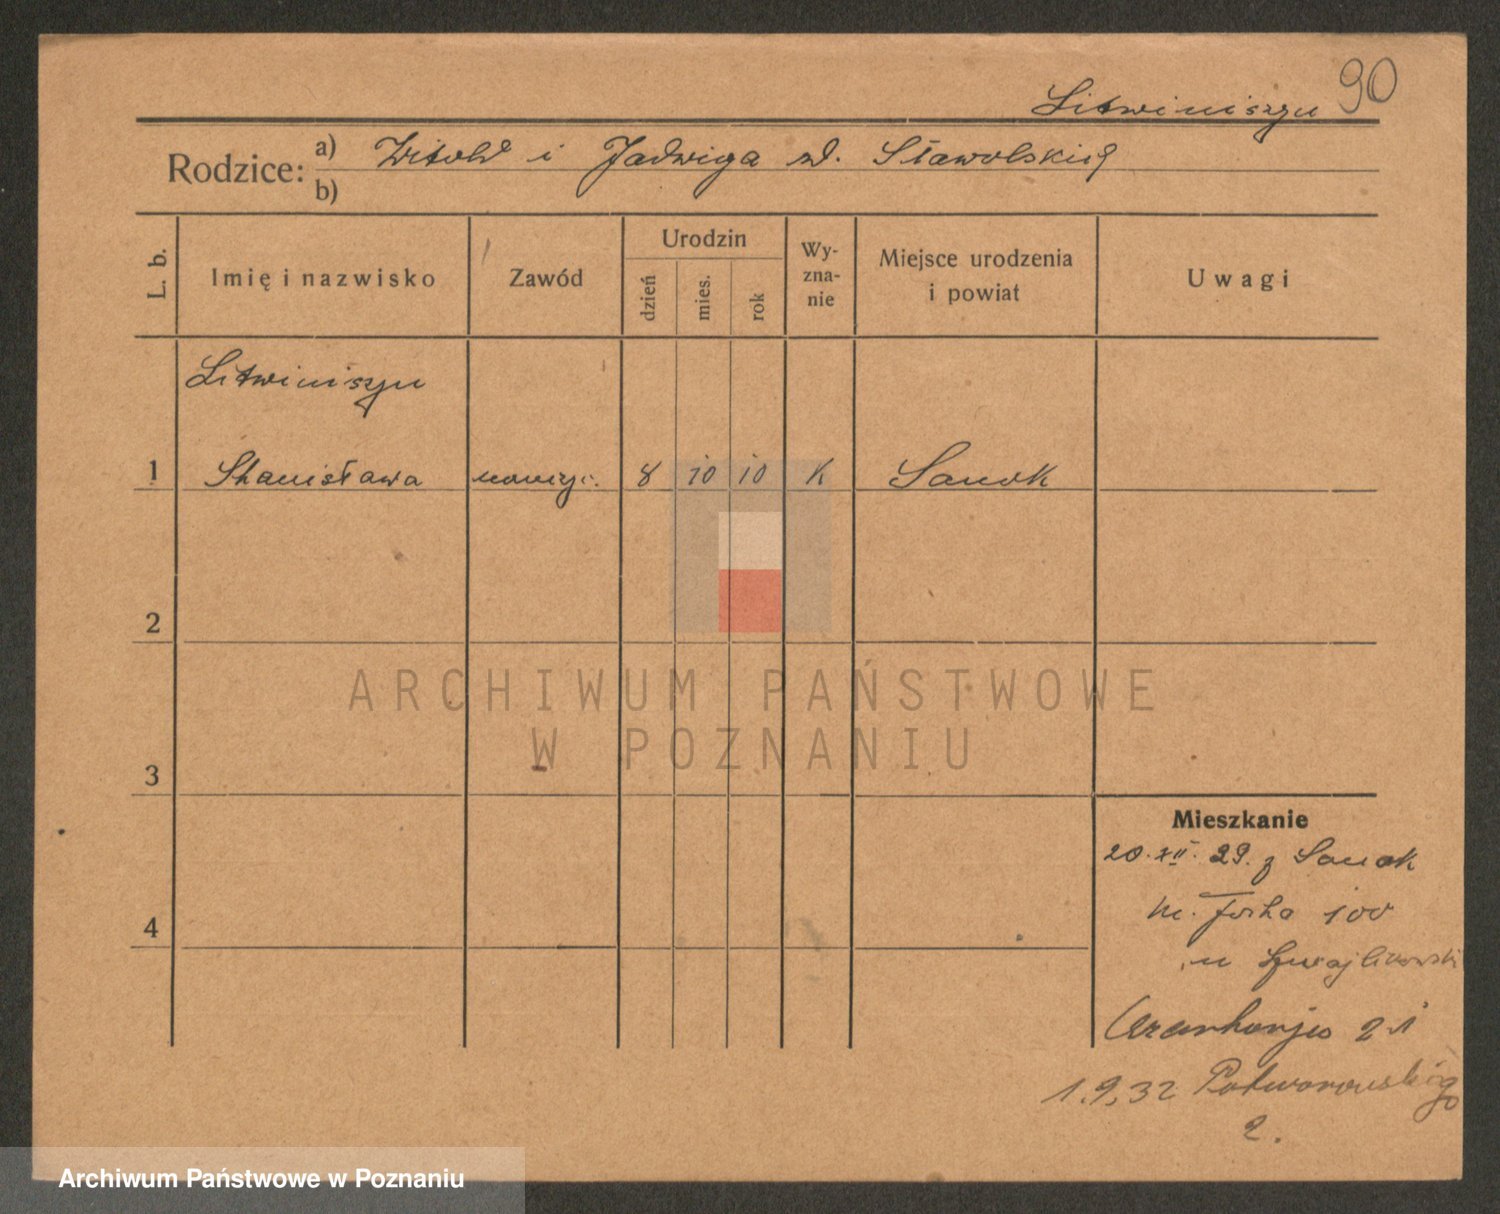 90
Litwiniszyn
Rodzice: a) Witold i Jadwiga zd. Sławolskich
b)
L. b. Imię i nazwisko Zawód Urodzin dzień mies. rok Wy-zna-nie Miejsce urodzenia i powiat Uwagi
Litwiniszyn
1 Stanisława 8 10 10 K Sanok
2
3
4
Mieszkanie
20.XII.29. z Sanok
100
21
1.9.32 Potworowskiego
2.
ARCHIWUM PAŃSTWOWE
W POZNANIU
Archiwum Państwowe w Poznaniu